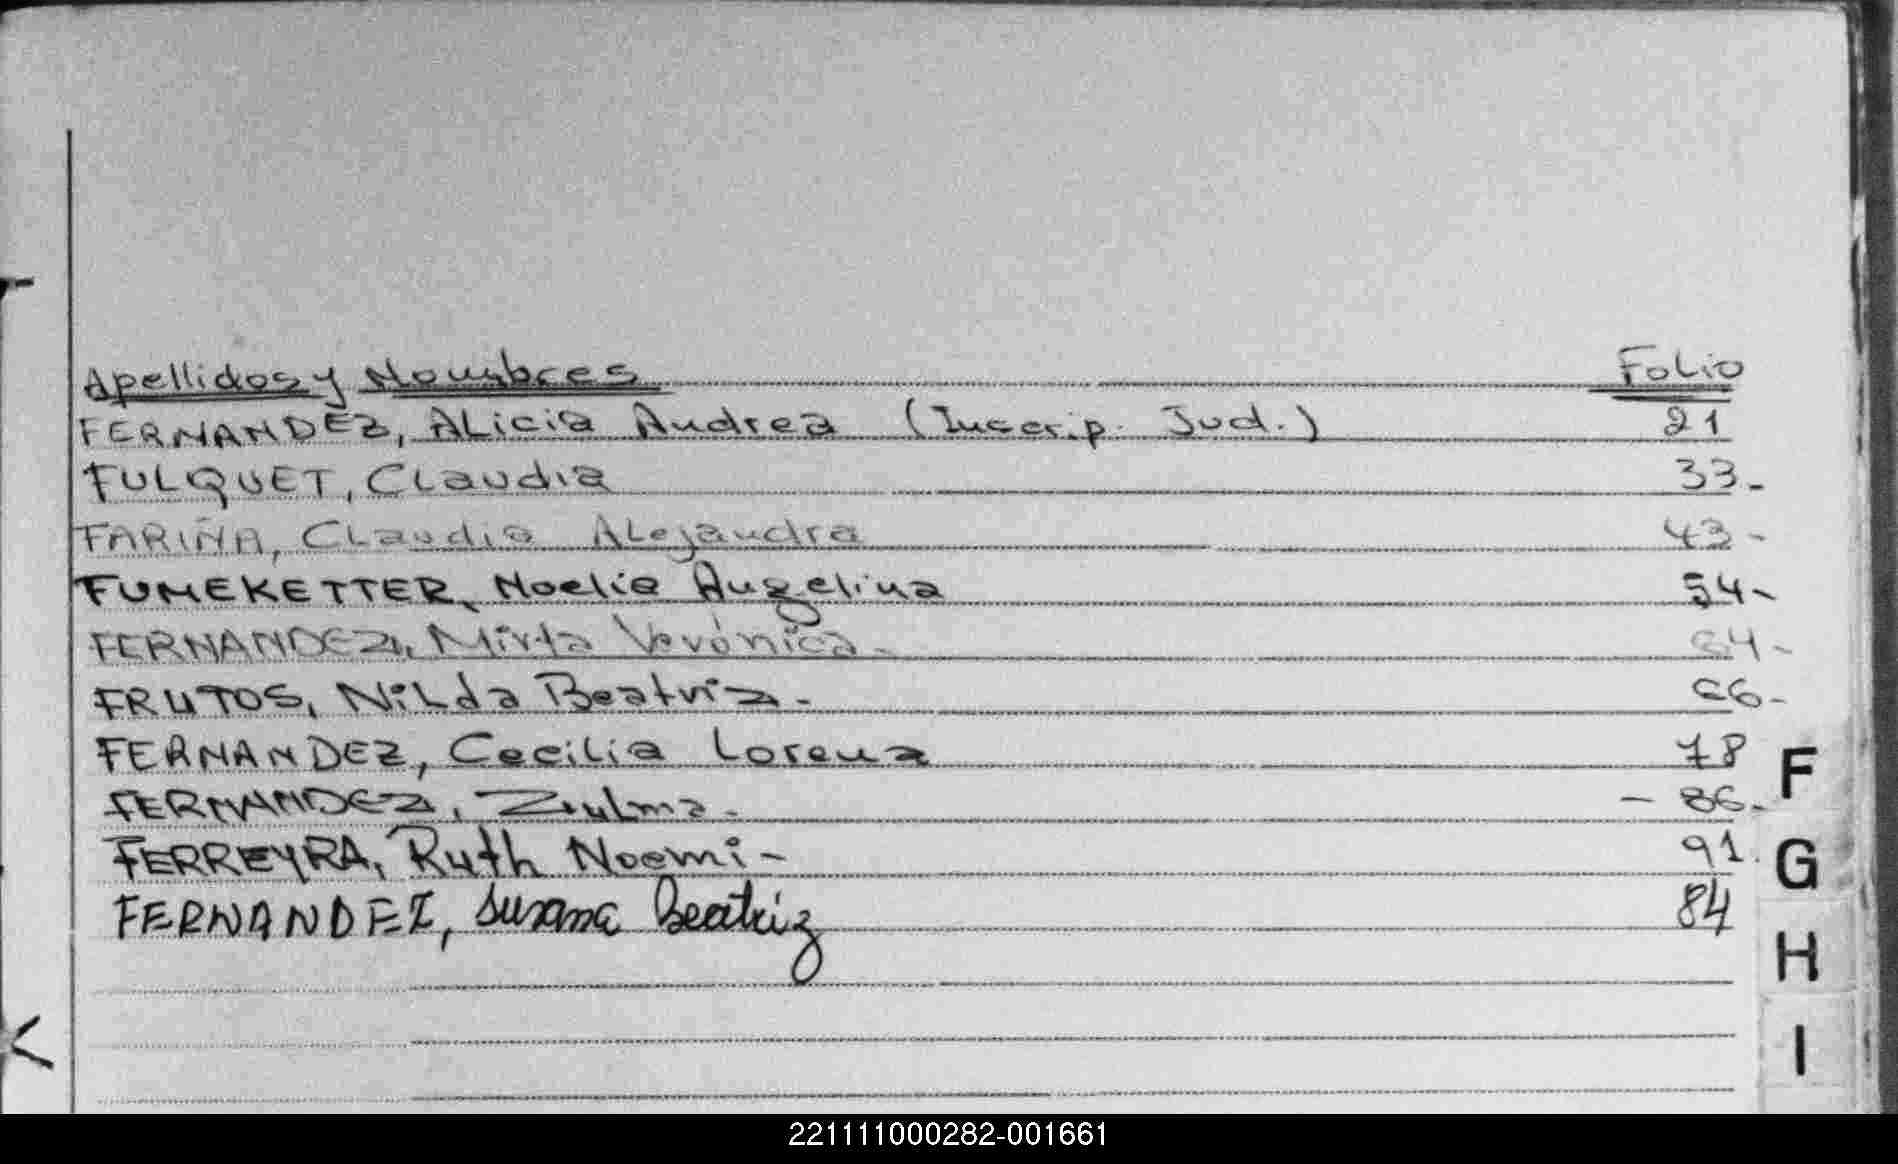 Apellidos y Nombres Folio
FERNANDEZ, Alicia Andrea (Inscrip. Jud.) 21
FULQUET, Claudia 33-
FARIÑA, Claudia Alejandra 43-
FUMEKETTER, Noelia Angelina 54-
FERNANDEZ, Mirta Verónica-
FRUTOS, Nilda Beatriz.-
FERNANDEZ, Cecilia Lorena 78
FERNANDEZ, Zulma.- - 86.
FERREYRA, Ruth Noemi- 91.
FERNANDEZ, Susana Beatriz 84
F
G
H
I
221111000282-001661